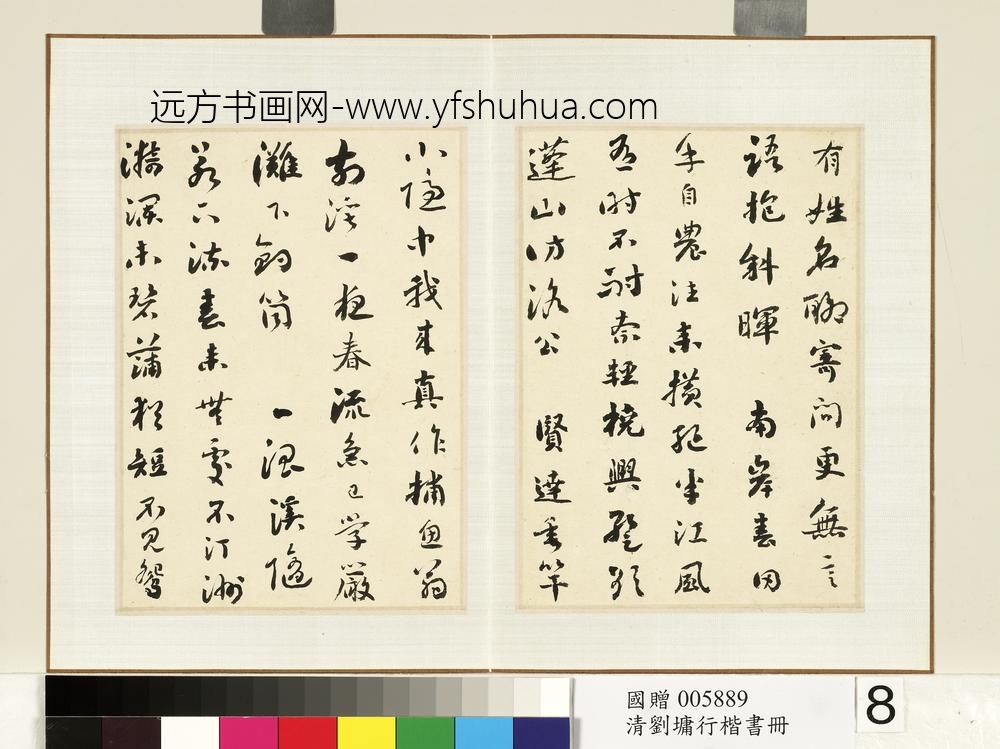 远方书画网-www.yfshuhua.com
有姓名聊寄問更無言
語抱斜暉 南岸春田
手自農往來橫絕半江風
有時不耐奈輕橈興暫欲
蓬山訪洛公 賢達垂竿
小隱中我來真作捕魚翁
前溪一夜春流急已學嚴
灘下釣筒 一派溪隨
箬下流春來無處不汀洲
漪瀾未碧蒲猶短不見鴛
國贈 005889
清劉墉行楷書冊
8